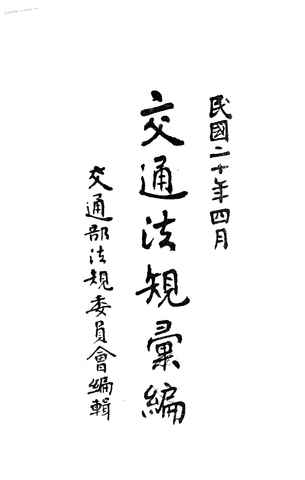 民國二十年四月
交通法規彙編
交通部法規委員會編輯